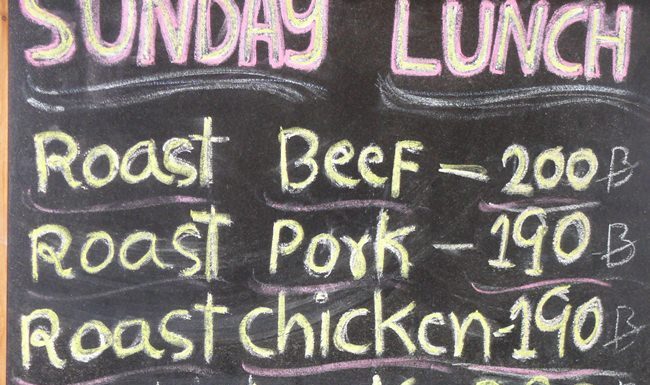 SUNDAY LUNCH
Roast Beef - 200 B
Roast Pork - 190 B
Roast chicken - 190 B